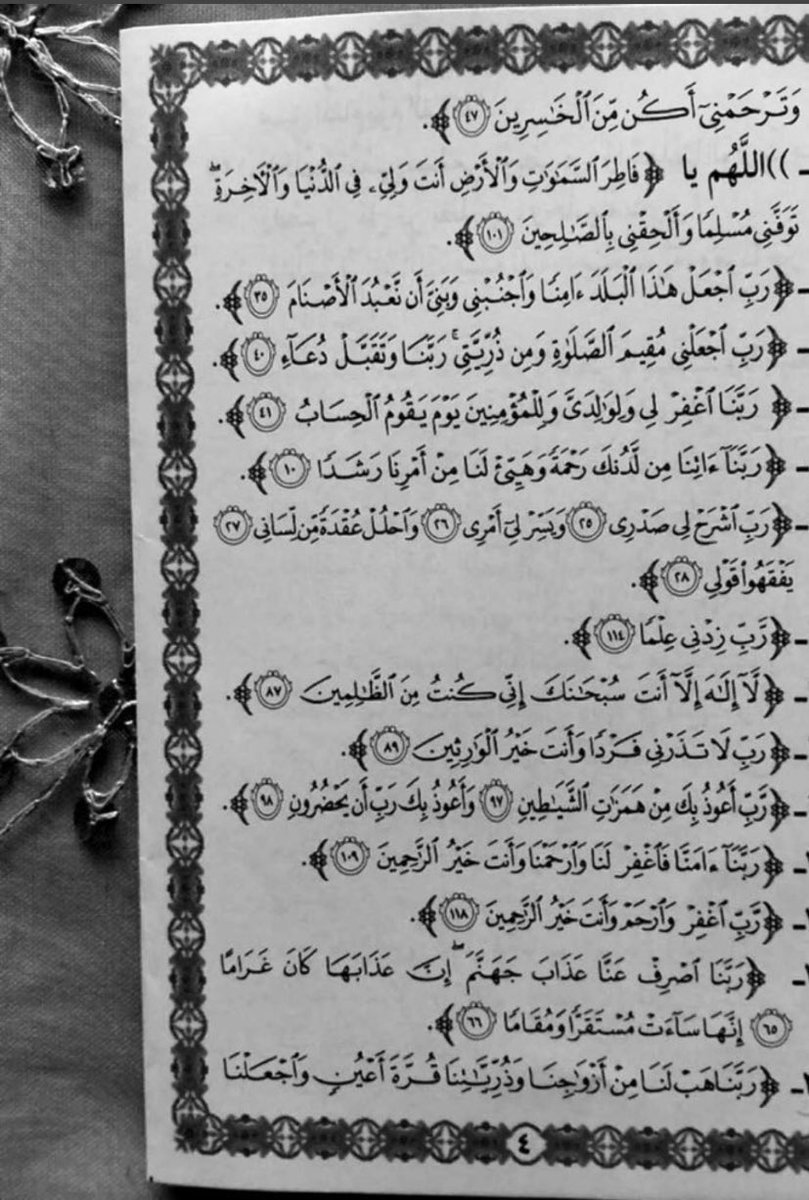 وَتَرْحَمْنِىٓ أَكُن مِّنَ ٱلْخَٰسِرِينَ ٤٧ ﴾.
ـ ))اللَّهُم يا ﴿فَاطِرَ ٱلسَّمَٰوَٰتِ وَٱلْأَرْضِ أَنتَ وَلِىِّۦ فِى ٱلدُّنْيَا وَٱلْءَاخِرَةِۖ
تَوَفَّنِى مُسْلِمًا وَأَلْحِقْنِى بِٱلصَّٰلِحِينَ ١٠١ ﴾.
ـ ﴿رَبِّ ٱجْعَلْ هَٰذَا ٱلْبَلَدَ ءَامِنًا وَٱجْنُبْنِى وَبَنِىَّ أَن نَّعْبُدَ ٱلْأَصْنَامَ ٣٥ ﴾.
ـ ﴿رَبِّ ٱجْعَلْنِى مُقِيمَ ٱلصَّلَوٰةِ وَمِن ذُرِّيَّتِىۚ رَبَّنَا وَتَقَبَّلْ دُعَآءِ ٤٠ ﴾.
ـ ﴿رَبَّنَا ٱغْفِرْ لِى وَلِوَٰلِدَىَّ وَلِلْمُؤْمِنِينَ يَوْمَ يَقُومُ ٱلْحِسَابُ ٤١ ﴾.
ـ ﴿رَبَّنَآ ءَاتِنَا مِن لَّدُنكَ رَحْمَةً وَهَيِّئْ لَنَا مِنْ أَمْرِنَا رَشَدًا ١٠ ﴾.
ـ ﴿رَبِّ ٱشْرَحْ لِى صَدْرِى ٢٥ وَيَسِّرْ لِىٓ أَمْرِى ٢٦ وَٱحْلُلْ عُقْدَةً مِّن لِّسَانِى ٢٧
يَفْقَهُوا۟ قَوْلِى ٢٨ ﴾.
ـ ﴿رَّبِّ زِدْنِى عِلْمًا ١١٤ ﴾.
ـ ﴿لَّآ إِلَٰهَ إِلَّآ أَنتَ سُبْحَٰنَكَ إِنِّى كُنتُ مِنَ ٱلظَّٰلِمِينَ ٨٧ ﴾.
ـ ﴿رَبِّ لَا تَذَرْنِى فَرْدًا وَأَنتَ خَيْرُ ٱلْوَٰرِثِينَ ٨٩ ﴾.
ـ ﴿رَّبِّ أَعُوذُ بِكَ مِنْ هَمَزَٰتِ ٱلشَّيَٰطِينِ ٩٧ وَأَعُوذُ بِكَ رَبِّ أَن يَحْضُرُونِ ٩٨ ﴾.
ـ ﴿رَبَّنَآ ءَامَنَّا فَٱغْفِرْ لَنَا وَٱرْحَمْنَا وَأَنتَ خَيْرُ ٱلرَّٰحِمِينَ ١٠٩ ﴾.
ـ ﴿رَّبِّ ٱغْفِرْ وَٱرْحَمْ وَأَنتَ خَيْرُ ٱلرَّٰحِمِينَ ١١٨ ﴾.
ـ ﴿رَبَّنَا ٱصْرِفْ عَنَّا عَذَابَ جَهَنَّمَۖ إِنَّ عَذَابَهَا كَانَ غَرَامًا
٦٥ إِنَّهَا سَآءَتْ مُسْتَقَرًّا وَمُقَامًا ٦٦ ﴾.
ـ ﴿رَبَّنَا هَبْ لَنَا مِنْ أَزْوَٰجِنَا وَذُرِّيَّٰتِنَا قُرَّةَ أَعْيُنٍ وَٱجْعَلْنَا
٤